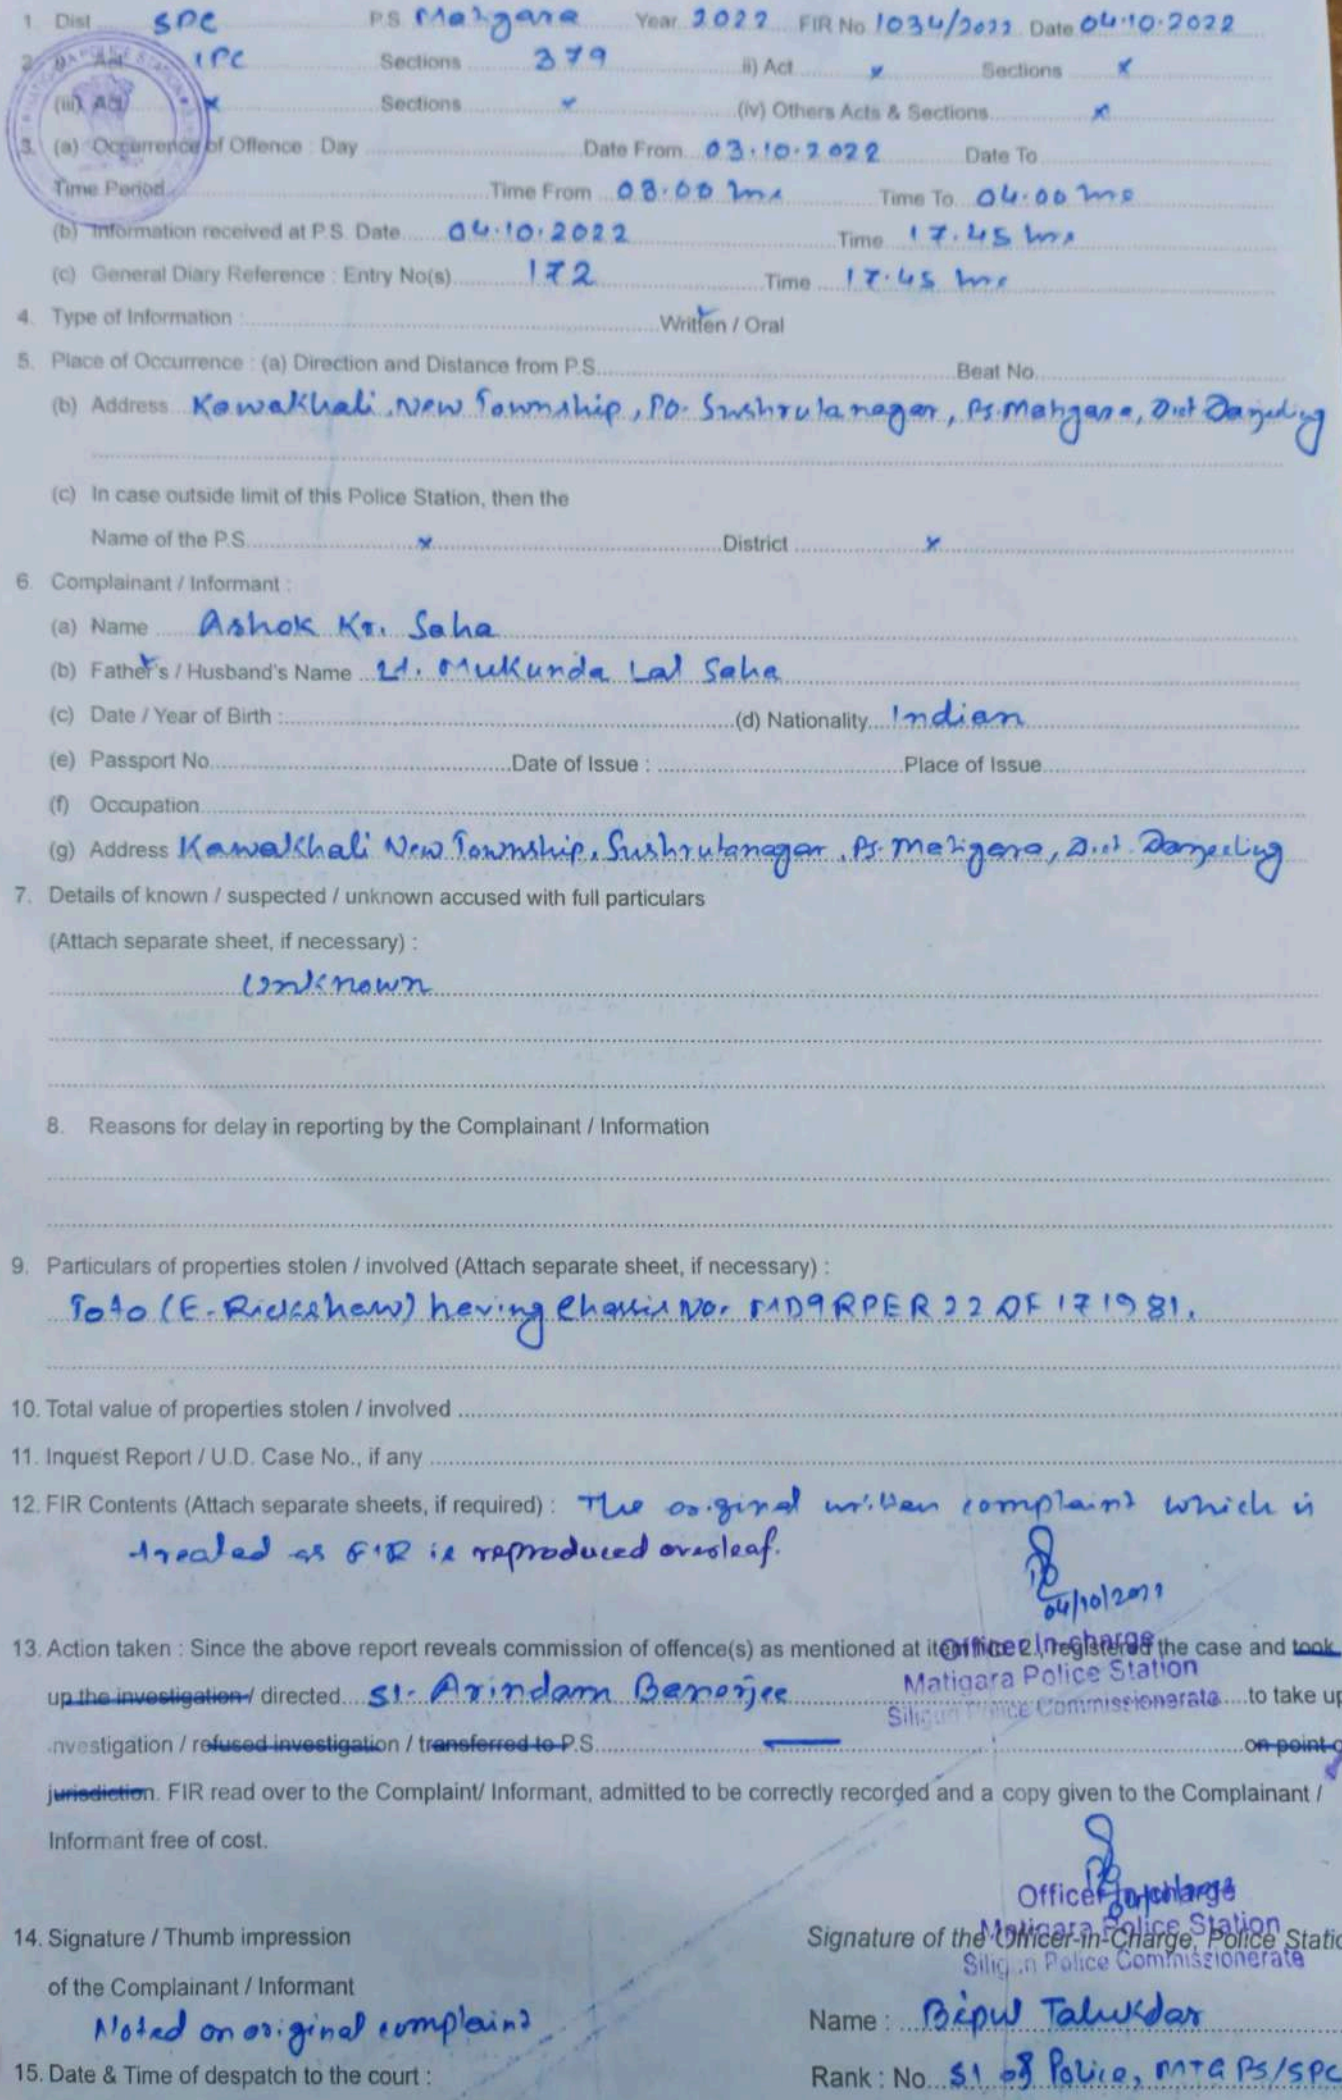 1. Dist SPC P.S. Matigara Year 2022 FIR No 1034/2022 Date 04.10.2022
2. i) Act IPC Sections 379 ii) Act x Sections x
(iii) Act x Sections x (iv) Others Acts & Sections x
3. (a) Occurrence of Offence : Day Date From 03.10.2022 Date To
Time Period Time From 03.00 hrs Time To 04.00 hrs
(b) Information received at P.S. Date 04.10.2022 Time 17.45 hrs
(c) General Diary Reference : Entry No(s) 172 Time 17.45 hrs
4. Type of Information : Written / Oral
5. Place of Occurrence : (a) Direction and Distance from P.S. Beat No.
(b) Address Kawakhali, New Township, PO. Sushrutanagar, Ps. Matigara, Dist Darjeeling
(c) In case outside limit of this Police Station, then the
Name of the P.S. x District x
6. Complainant / Informant :
(a) Name Ashok Kr. Saha
(b) Father's / Husband's Name Lt. Mukunda Lal Saha
(c) Date / Year of Birth : (d) Nationality Indian
(e) Passport No. Date of Issue : Place of Issue
(f) Occupation
(g) Address Kawakhali New Township, Sushrutanagar, Ps. Matigara, Dist. Darjeeling
7. Details of known / suspected / unknown accused with full particulars
(Attach separate sheet, if necessary) :
Unknown
8. Reasons for delay in reporting by the Complainant / Information
9. Particulars of properties stolen / involved (Attach separate sheet, if necessary) :
Toto (E-Rickshaw) having Chassis No. MD9RPER22DF171981.
10. Total value of properties stolen / involved
11. Inquest Report / U.D. Case No., if any
12. FIR Contents (Attach separate sheets, if required) : The original written complaint which is
treated as FIR is reproduced overleaf.
04/10/2022
13. Action taken : Since the above report reveals commission of offence(s) as mentioned at item no 2., registered the case and took
Officer In-charge
Matigara Police Station
Siliguri Police Commissionerate
up the investigation / directed SI. Arindam Banerjee to take up
investigation / refused investigation / transferred to P.S. on point o
jurisdiction. FIR read over to the Complaint/ Informant, admitted to be correctly recorded and a copy given to the Complainant /
Informant free of cost.
Officer In-charge
Matigara Police Station
Siliguri Police Commissionerate
14. Signature / Thumb impression Signature of the Officer-in-Charge, Police Statio
of the Complainant / Informant
Noted on original complaint Name : Bipul Talukdar
15. Date & Time of despatch to the court : Rank : No. SI of Police, MTG PS/SPC